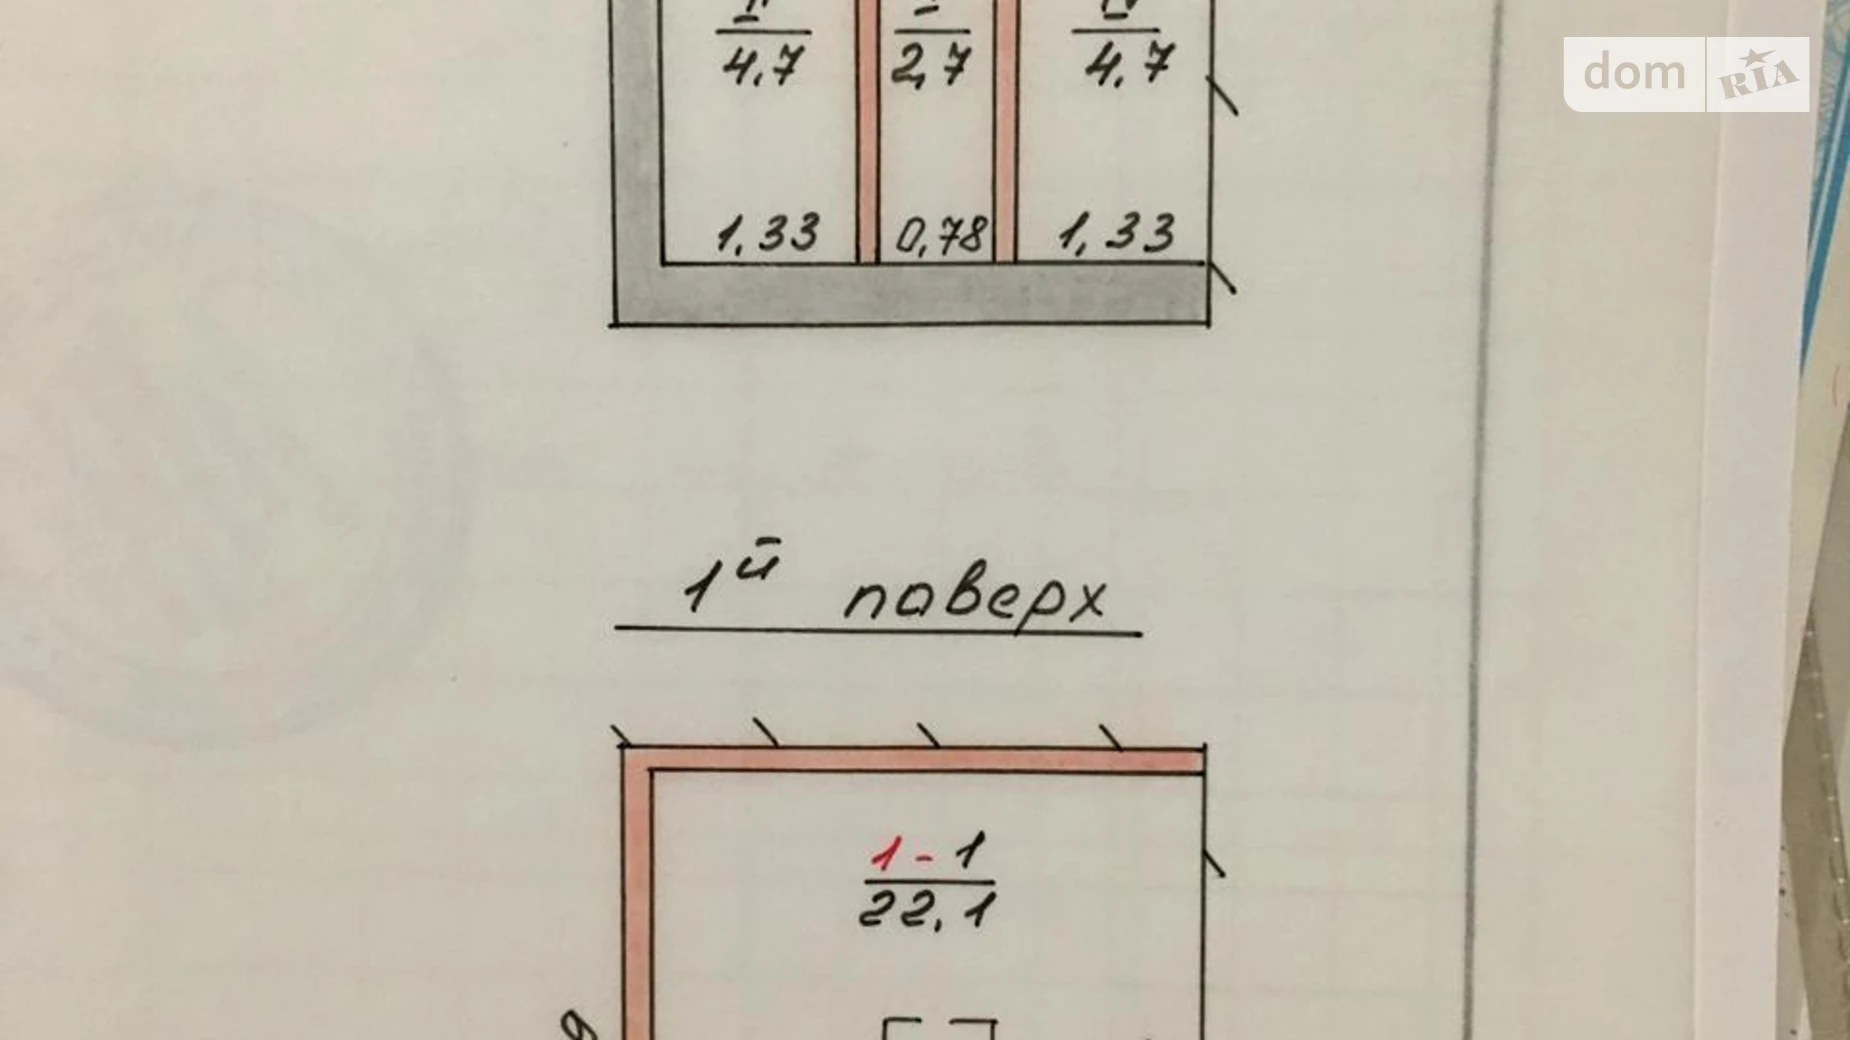 dom RIA
4,7 2,7 4,7
1,33 0,78 1,33
1й поверх
1-1
22,1